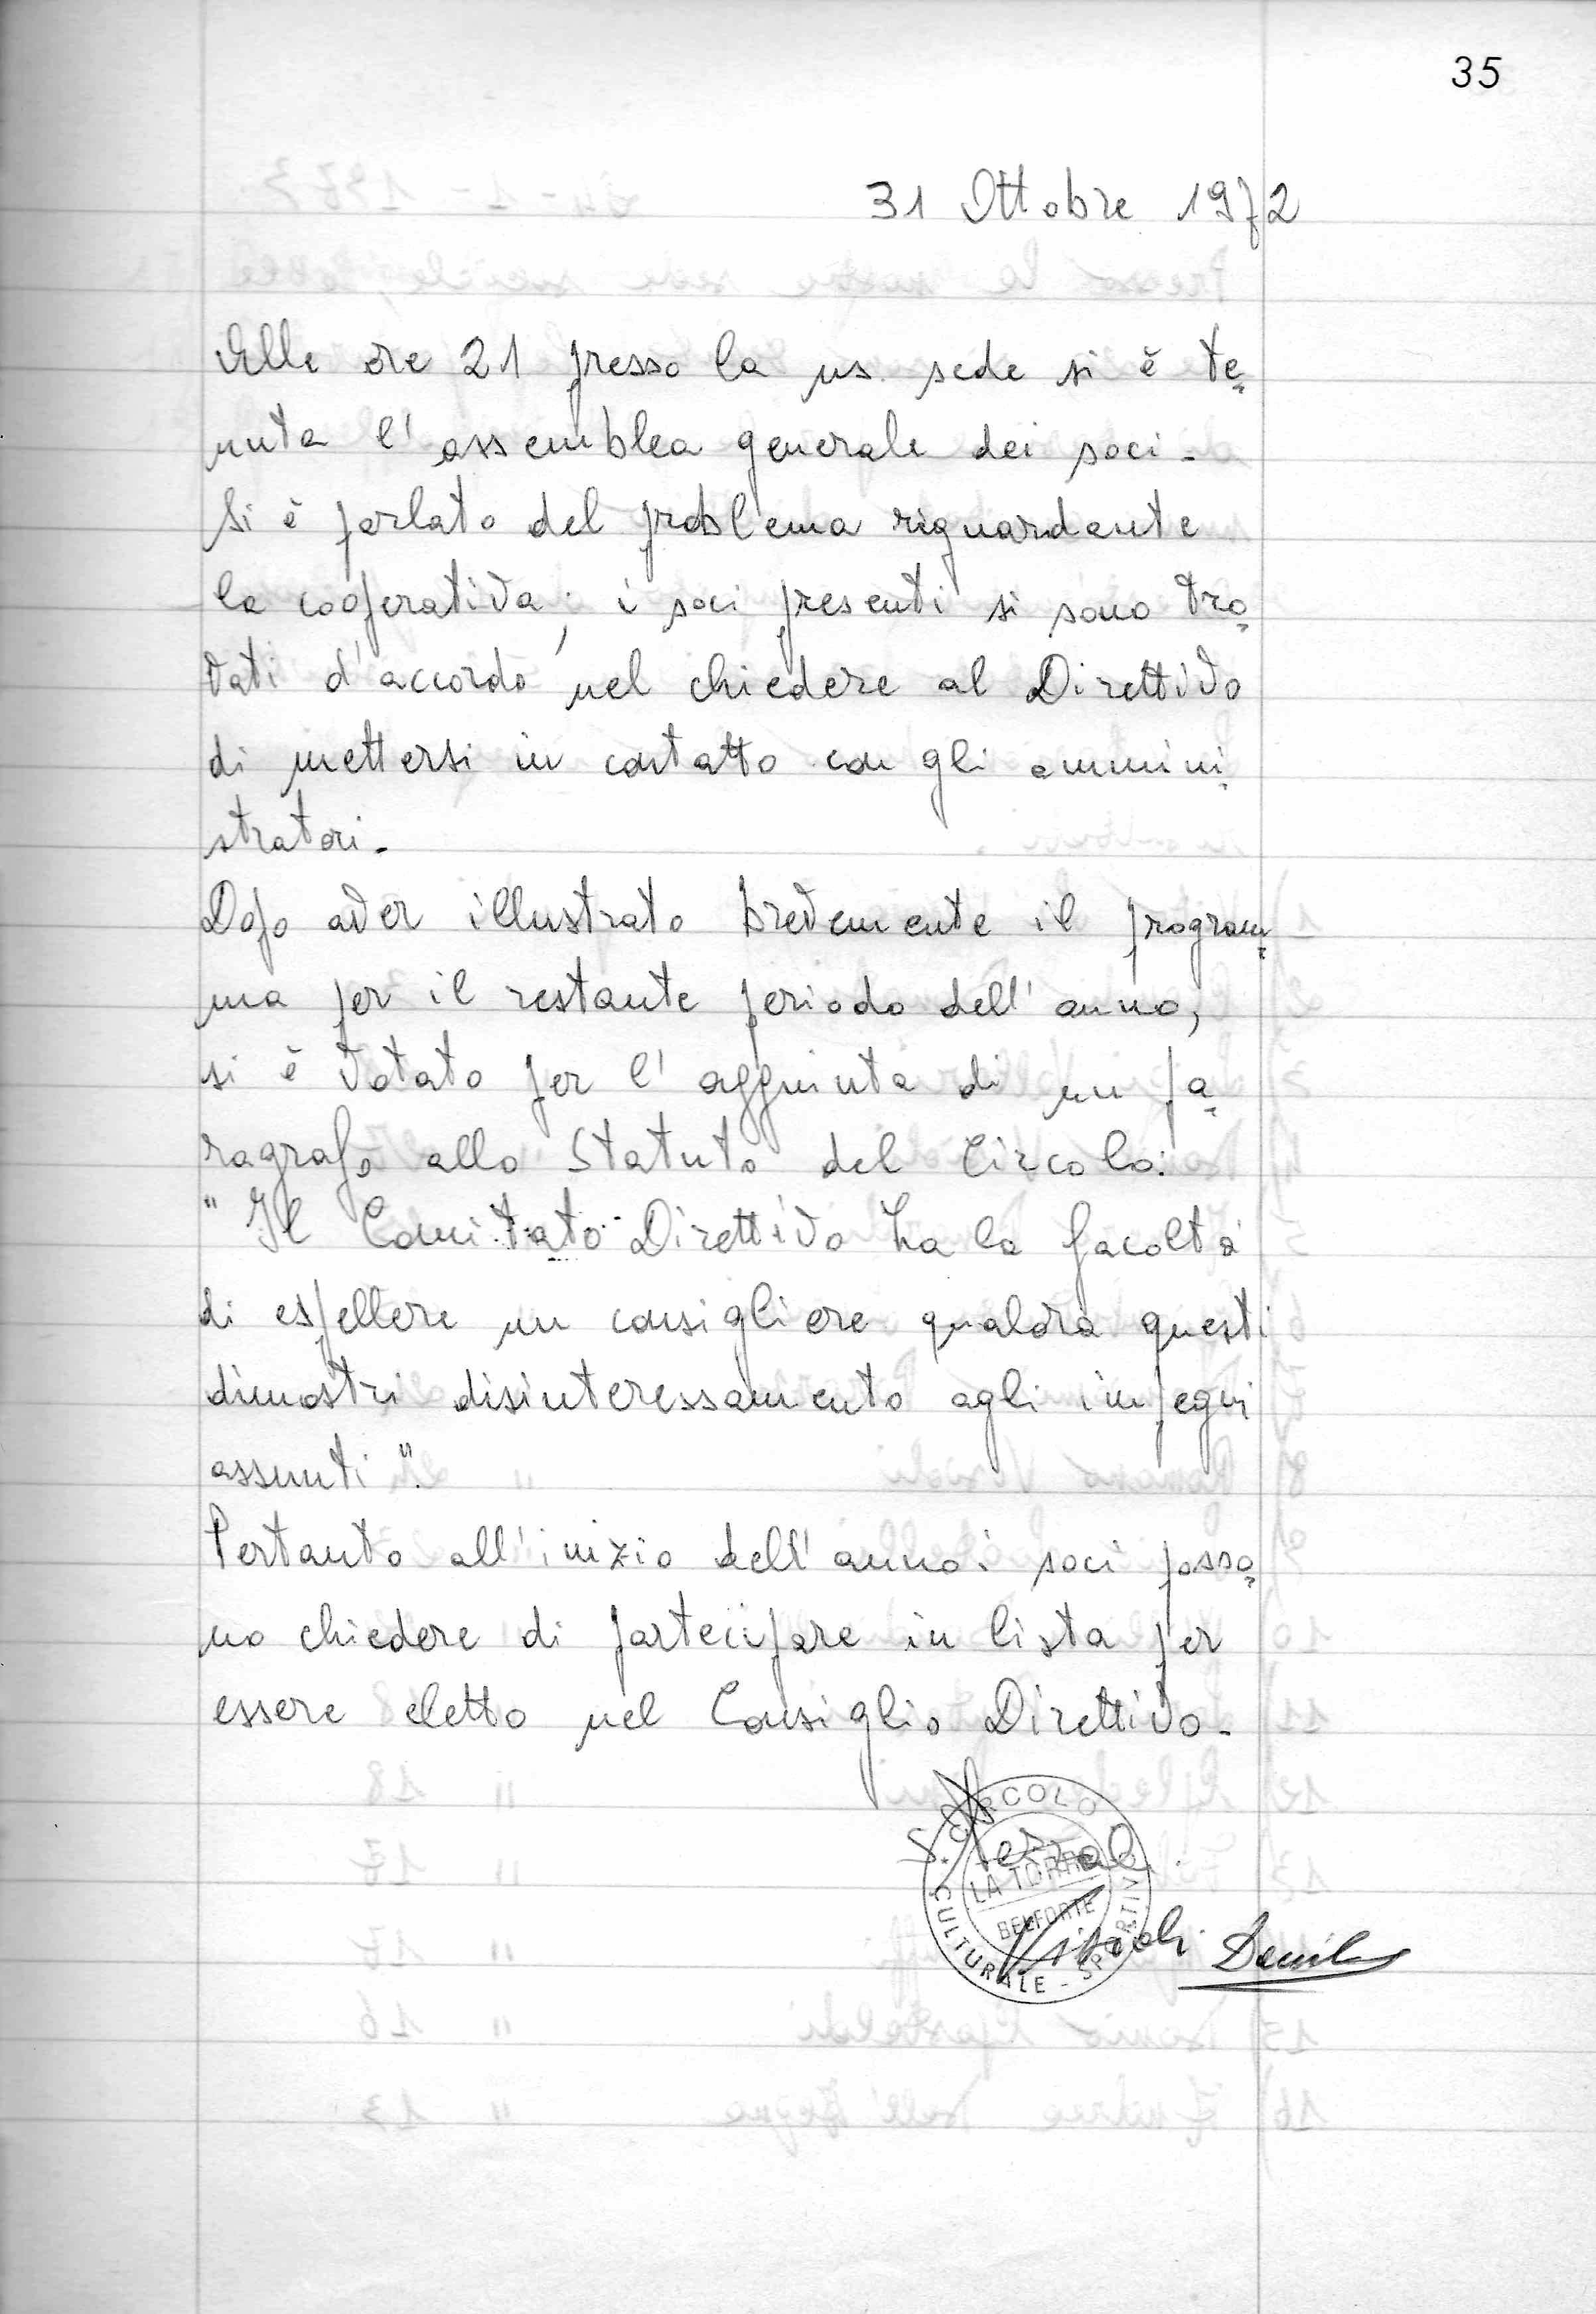 35
31 Ottobre 1972
Alle ore 21 presso la ns. sede si è te=
nuta l'assemblea generale dei soci-
Si è parlato del problema riguardante
la cooperativa; i soci presenti si sono tro=
vati d'accordo nel chiedere al Direttivo
di mettersi in contatto con gli ammini=
stratori-
Dopo aver illustrato brevemente il program=
ma per il restante periodo dell'anno,
si è votato per l'aggiunta di un pa=
ragrafo allo Statuto del Circolo:
"Il Comitato Direttivo ha la facoltà
di espellere un consigliere qualora questi
dimostri disinteressamento agli impegni
assunti".
Pertanto all'inizio dell'anno i soci posso=
no chiedere di partecipare in lista per
essere eletto nel Consiglio Direttivo-
CIRCOLO
LA TORRE
BELFORTE
CULTURALE - SPORTIVO
Visioli Danilo